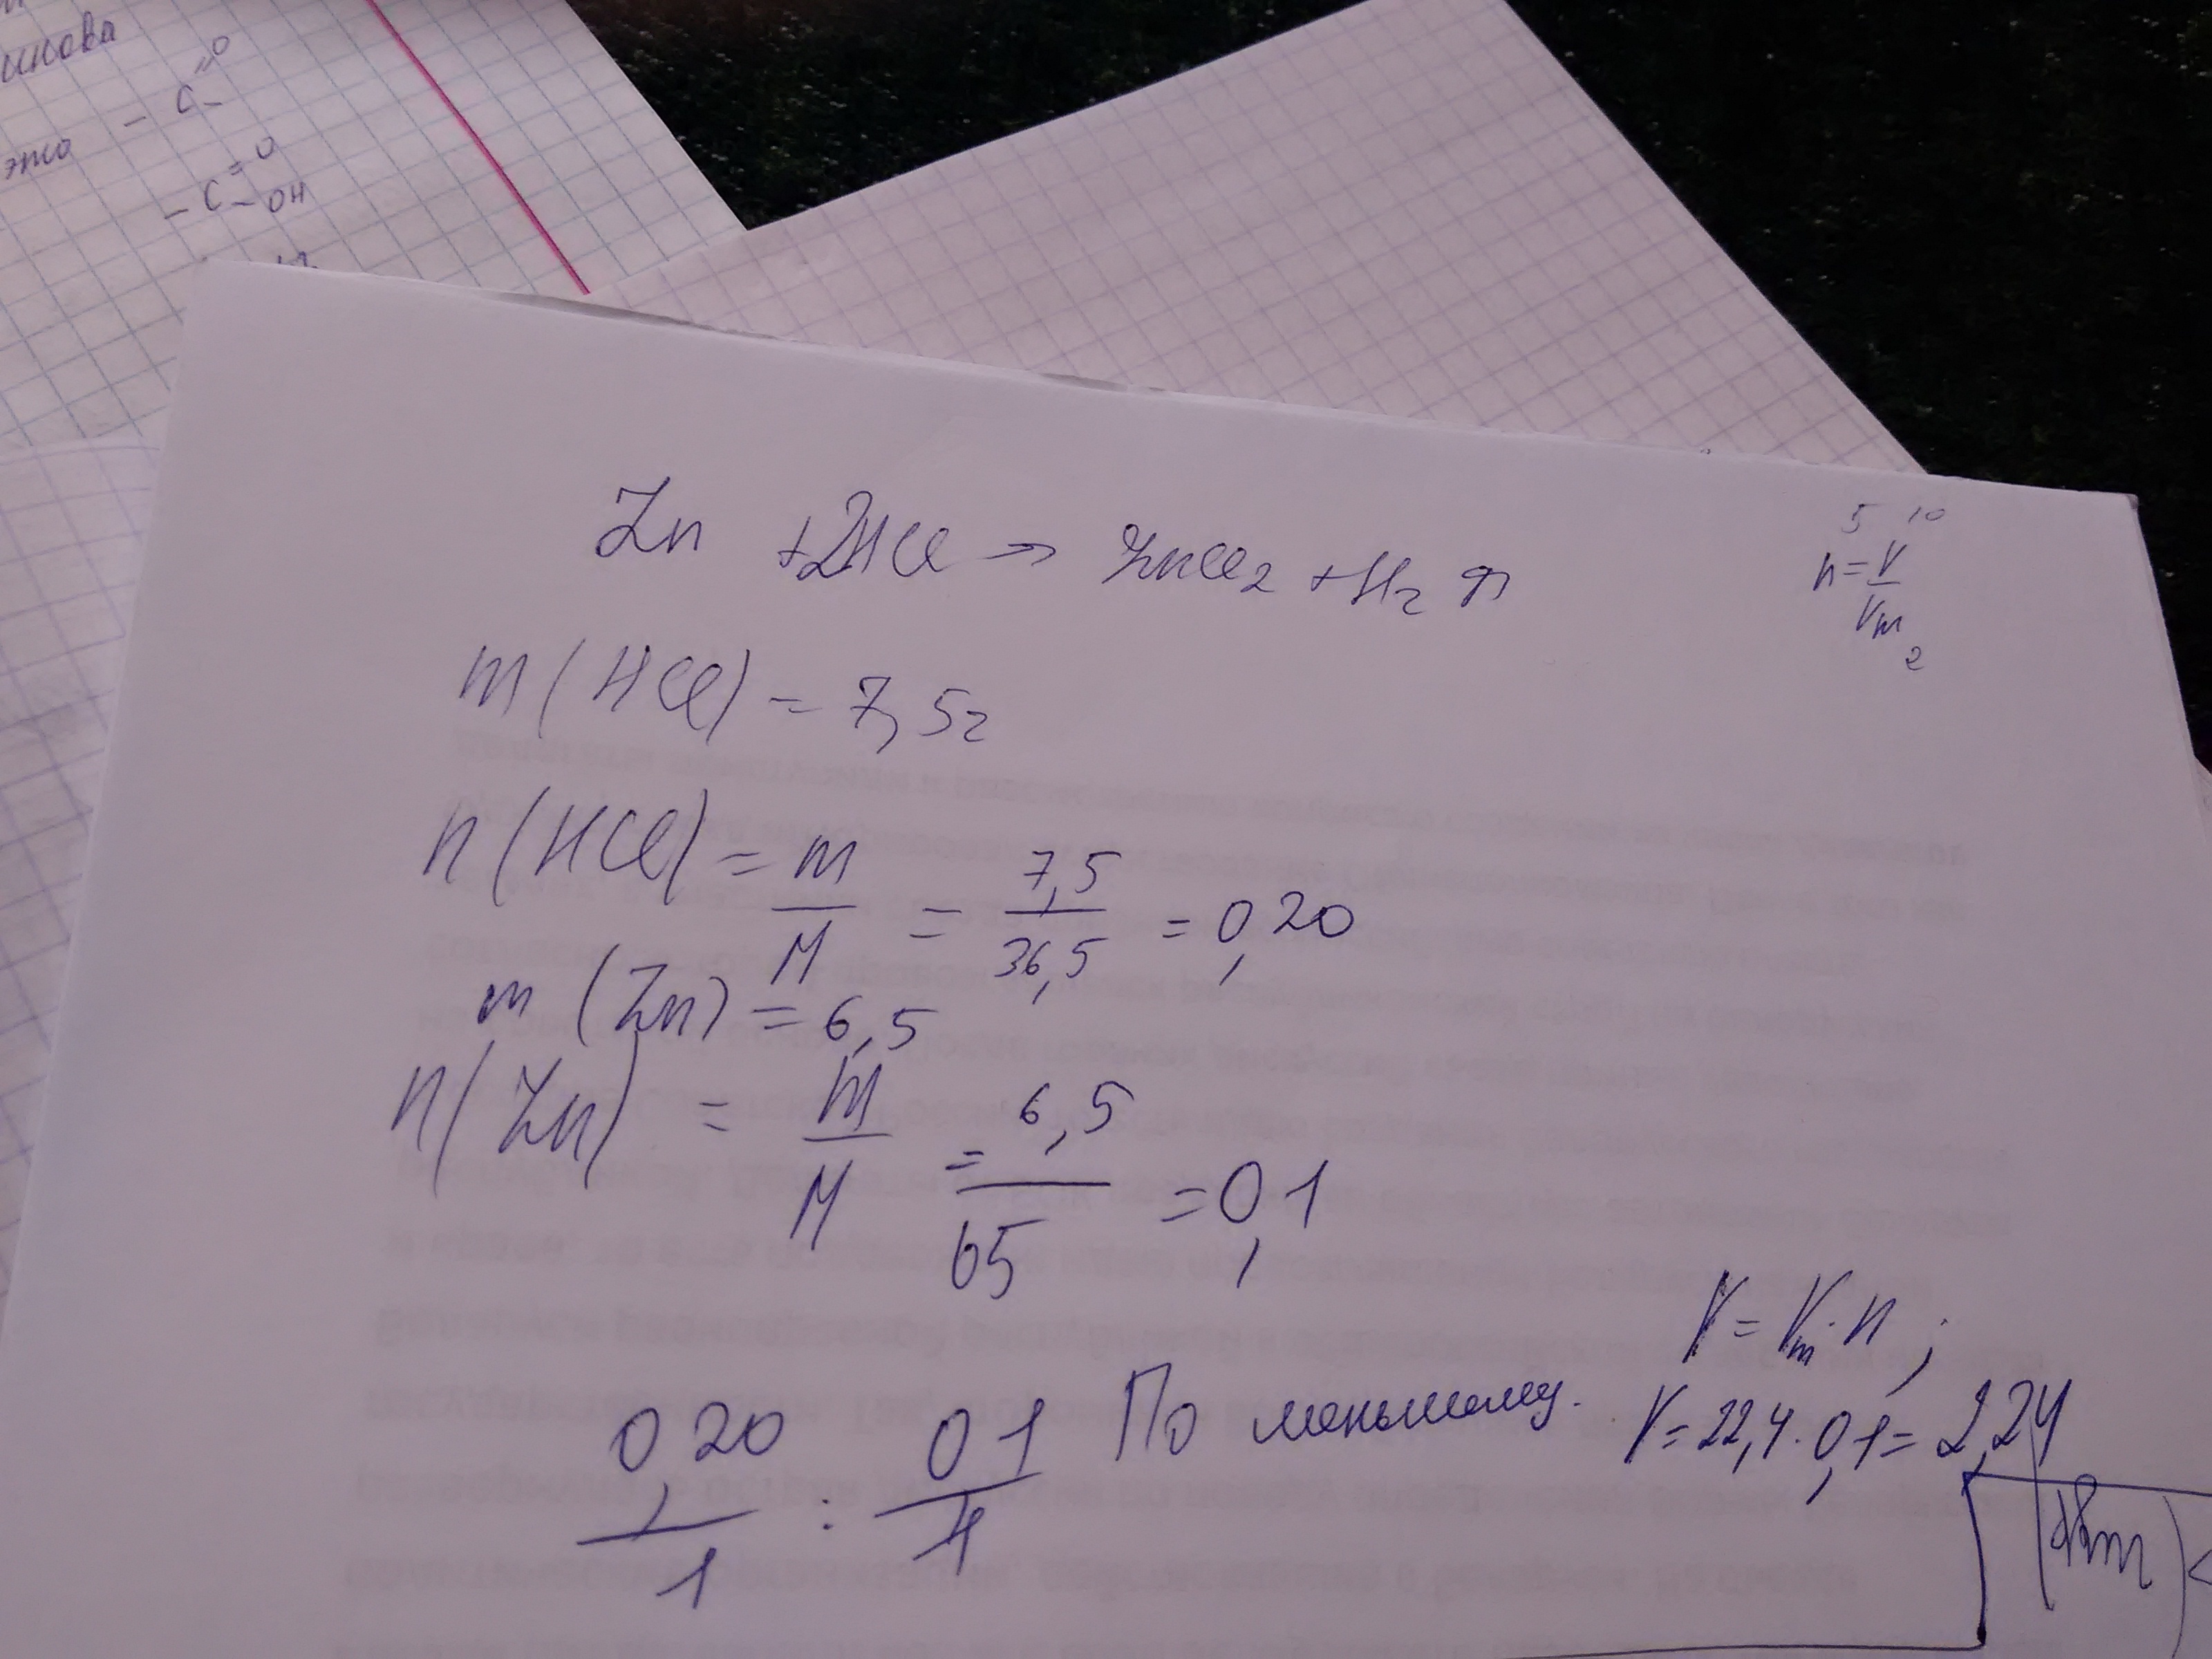 это - C =O
- C =O - OH
Zn + 2HCl → ZnCl₂ + H₂ ↑
5 10
n = V / Vm
2
m (HCl) = 7,5г
n (HCl) = m / M = 7,5 / 36,5 = 0,20
m (Zn) = 6,5
n (Zn) = m / M = 6,5 / 65 = 0,1
V = Vm · n ;
0,20 / 1 : 0,1 / 1 По меньшему. V = 22,4 · 0,1 = 2,24